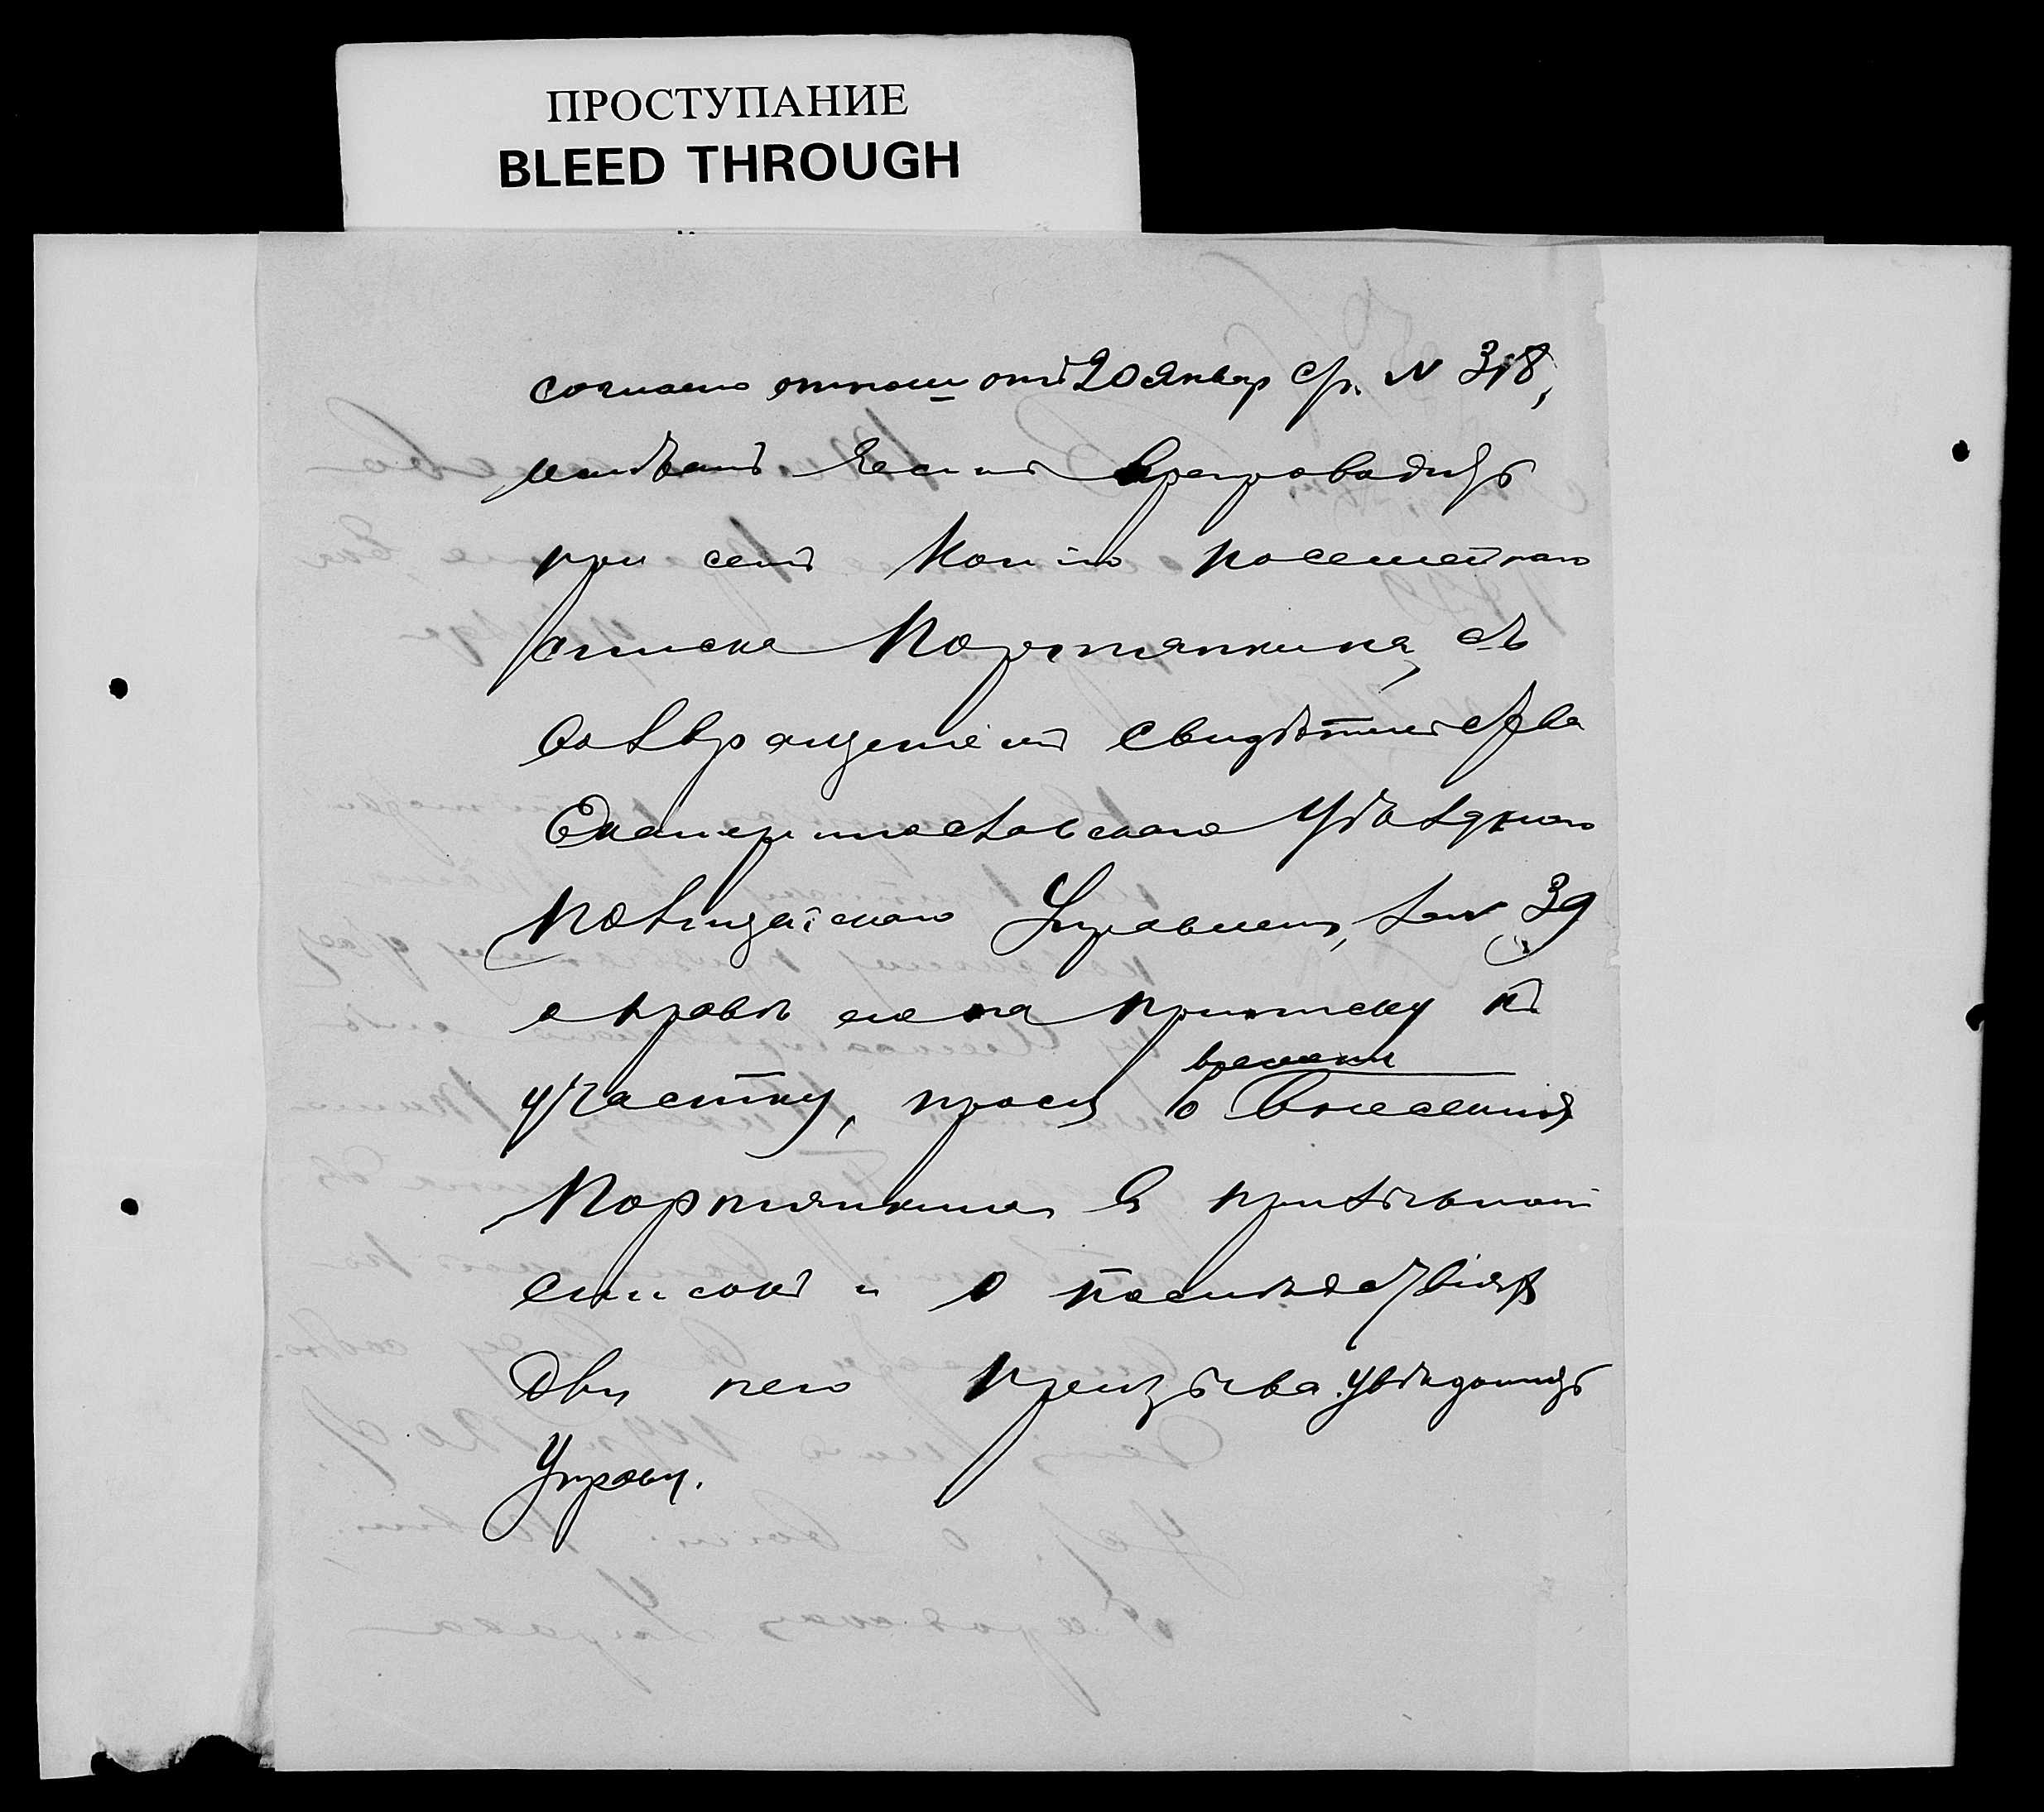 ПРОСТУПАНИЕ
BLEED THROUGH
согласно отнош отъ 20 Январ с/г. N 318,
имѣетъ честь препроводить
при семъ копію посемейнаго
списка Портянкина, съ
возвращеніемъ свидѣтельства
Екатеринославскаго Уѣзднаго
Полицейскаго Управленія, за N 39
о правѣ его на приписку къ
участку, прося о внесеніи
времени
Портянкина в призывной
списокъ и о послѣдствіяхъ
для него призыва увѣдомить
Управу.